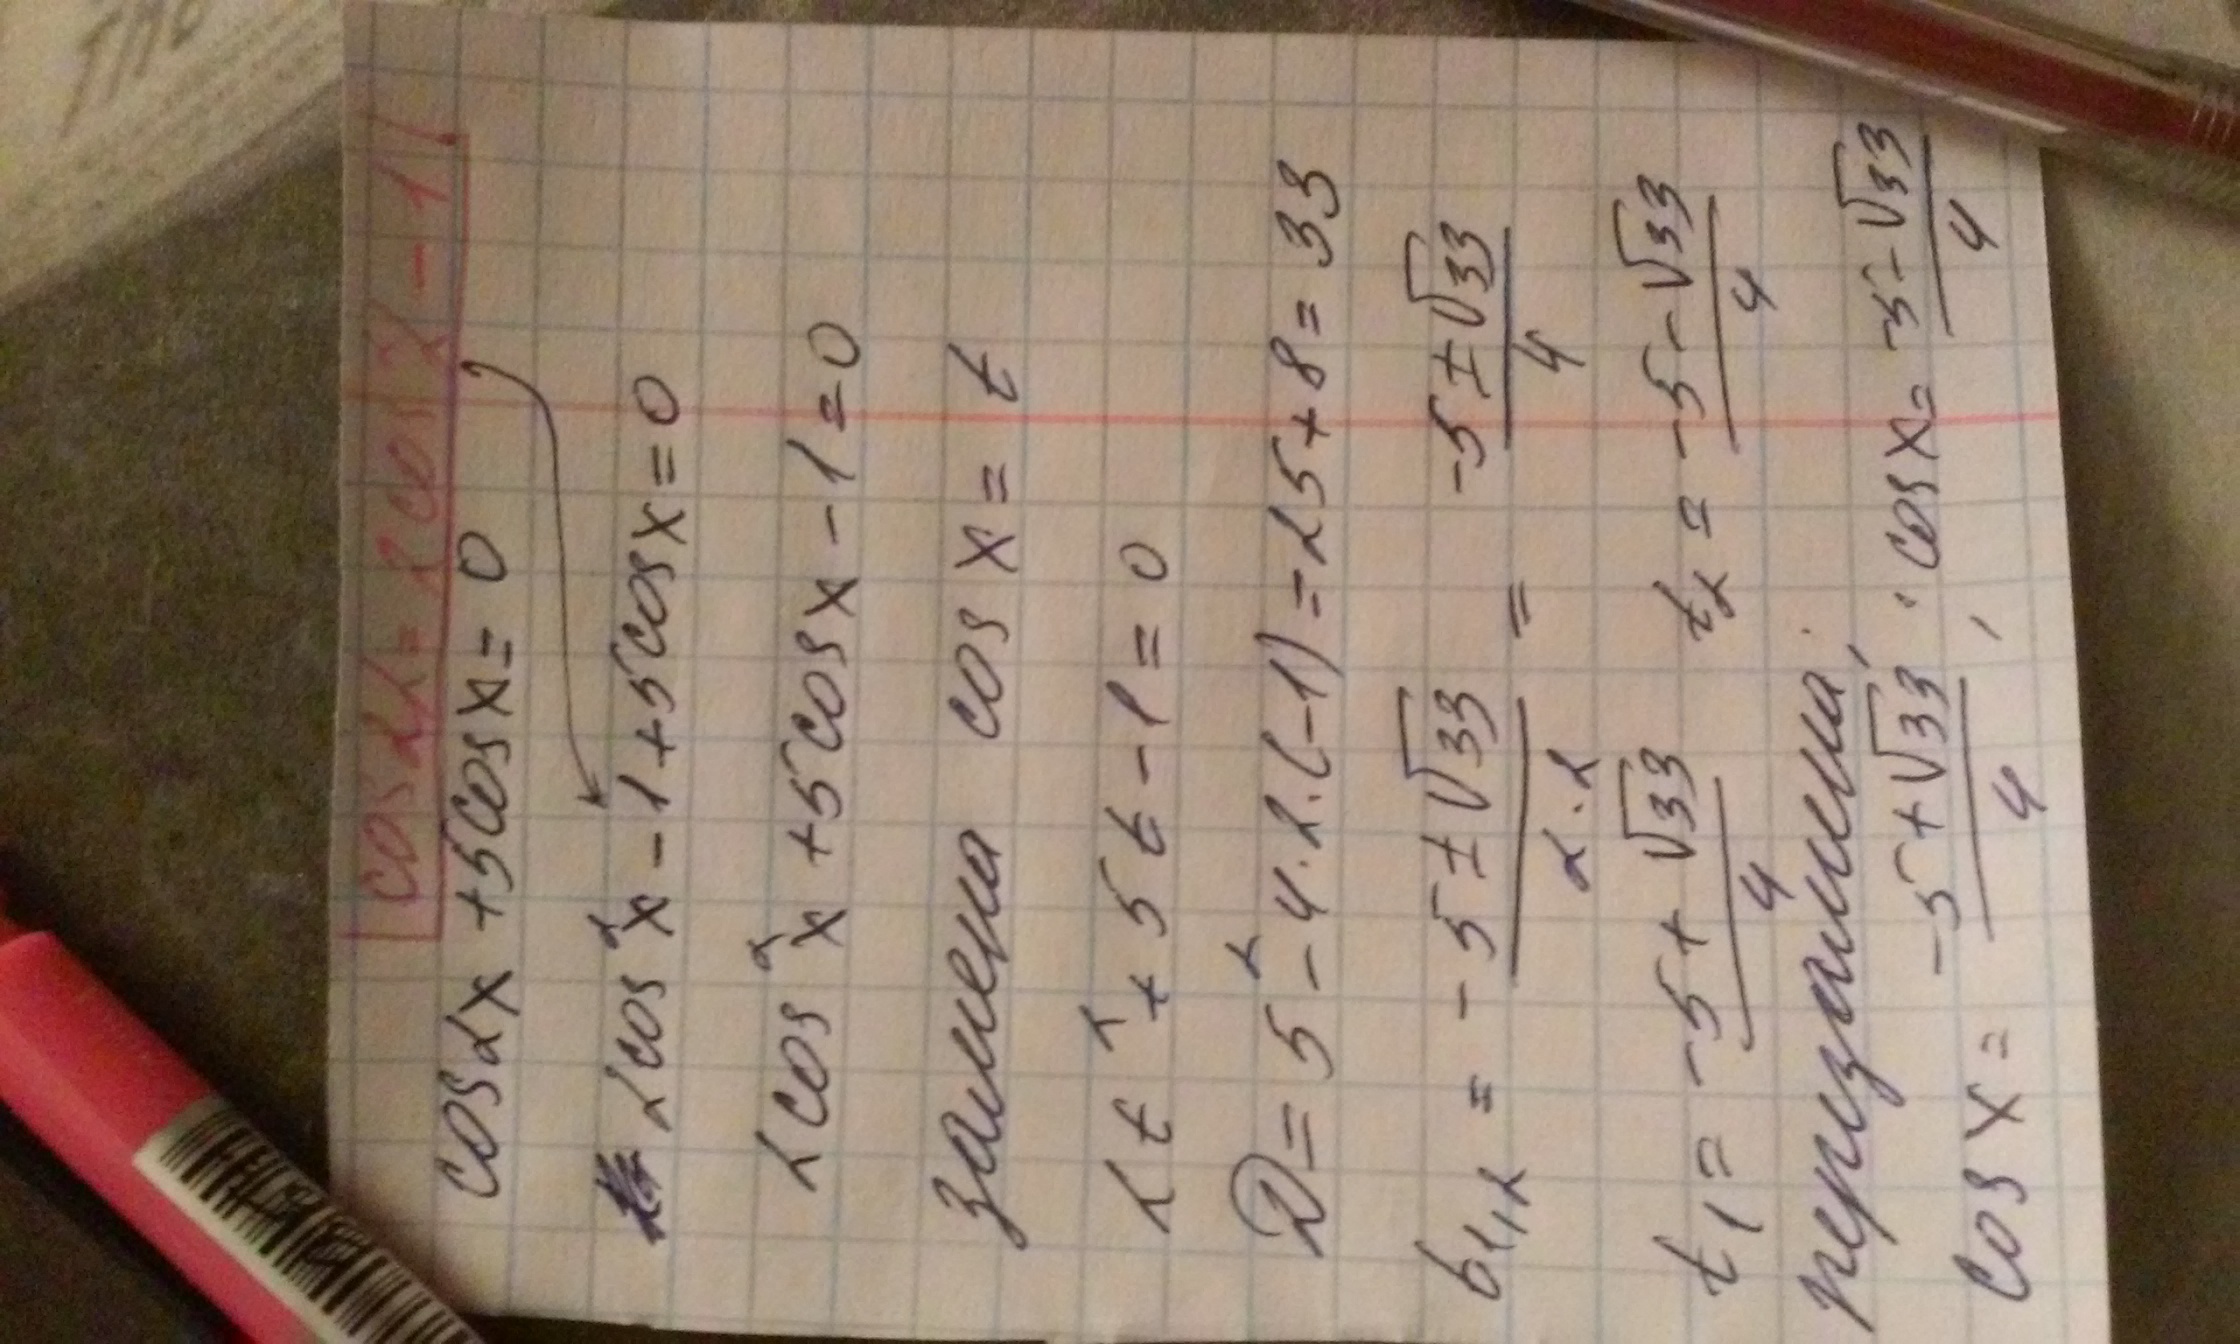 cos2α = 2cos²α - 1!
cos2x + 5cosx = 0
2cos²x - 1 + 5cosx = 0
2cos²x + 5cosx - 1 = 0
замена cosx = t
2t² + 5t - 1 = 0
D = 5² - 4·2·(-1) = 25 + 8 = 33
t₁,₂ = (-5 ± √33)/(2·2) = (-5 ± √33)/4
t₁ = (-5 + √33)/4 t₂ = (-5 - √33)/4
перезамена:
cosx = (-5 + √33)/4 ; cosx = (-5 - √33)/4